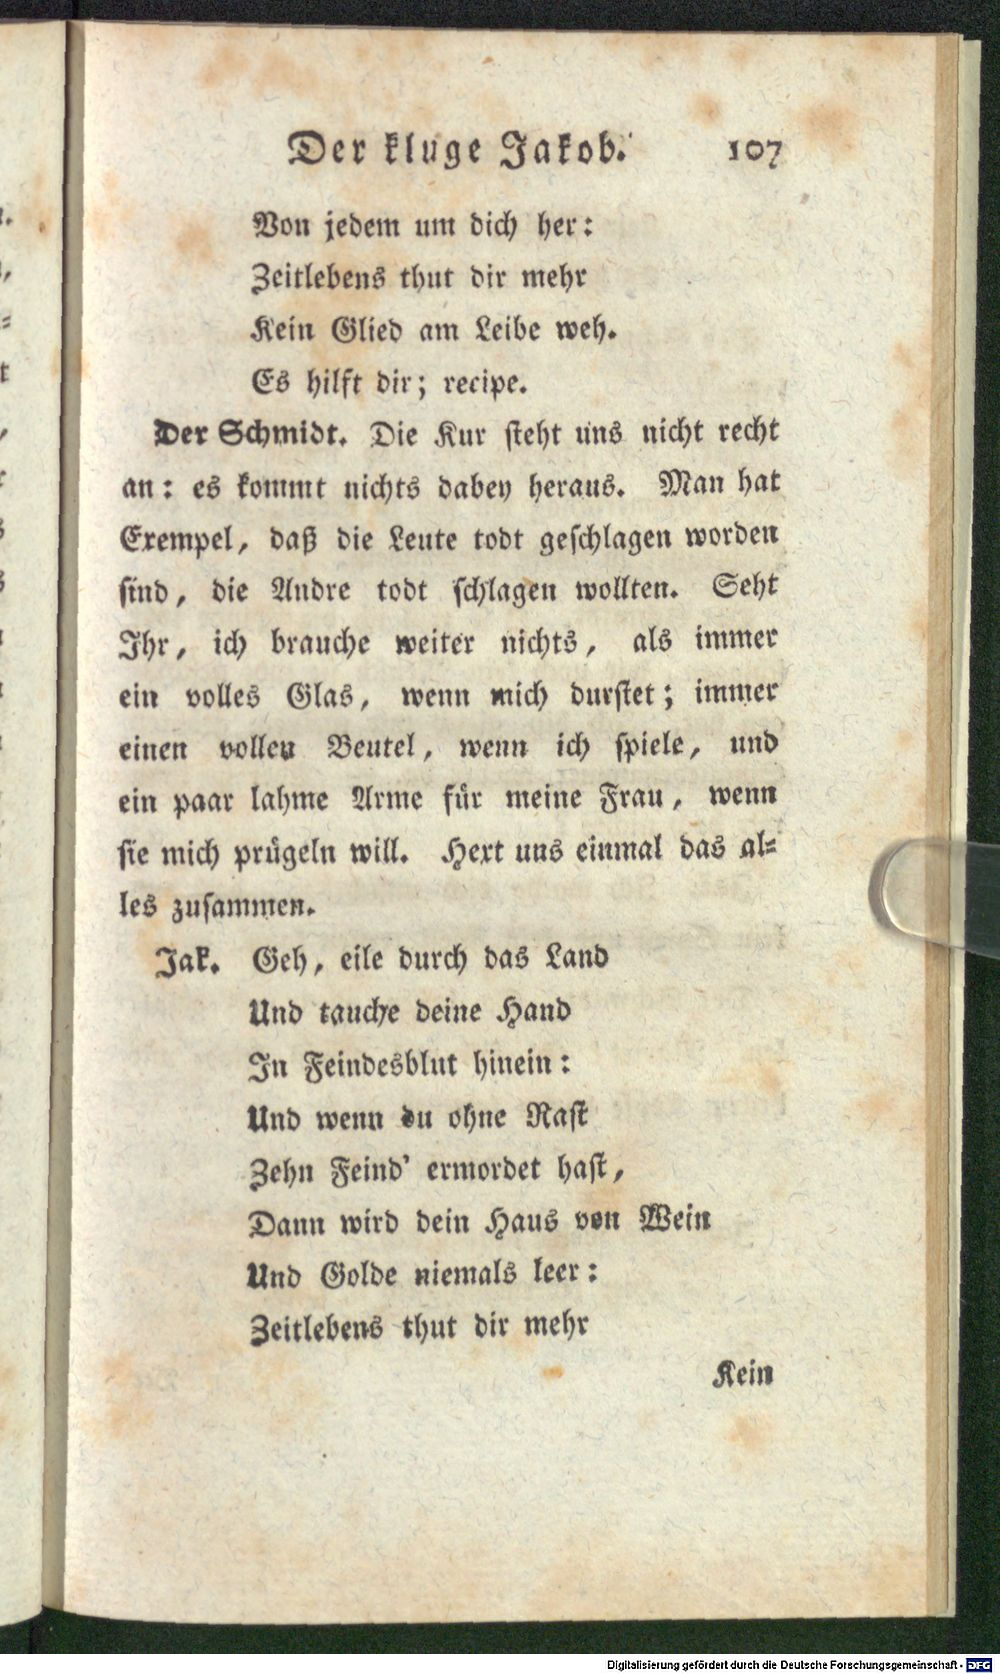 Der kluge Jakob. 107
Von jedem um dich her:
Zeitlebens thut dir mehr
Kein Glied am Leibe weh.
Es hilft dir; recipe.
Der Schmidt. Die Kur steht uns nicht recht
an: es kommt nichts dabey heraus. Man hat
Exempel, daß die Leute todt geschlagen worden
sind, die Andre todt schlagen wollten. Seht
Ihr, ich brauche weiter nichts, als immer
ein volles Glas, wenn mich durstet; immer
einen vollen Beutel, wenn ich spiele, und
ein paar lahme Arme für meine Frau, wenn
sie mich prügeln will. Hext uns einmal das al-
les zusammen.
Jak. Geh, eile durch das Land
Und tauche deine Hand
In Feindesblut hinein:
Und wenn du ohne Rast
Zehn Feind' ermordet hast,
Dann wird dein Haus von Wein
Und Golde niemals leer:
Zeitlebens thut dir mehr
Kein
Digitalisierung gefördert durch die Deutsche Forschungsgemeinschaft - DFG